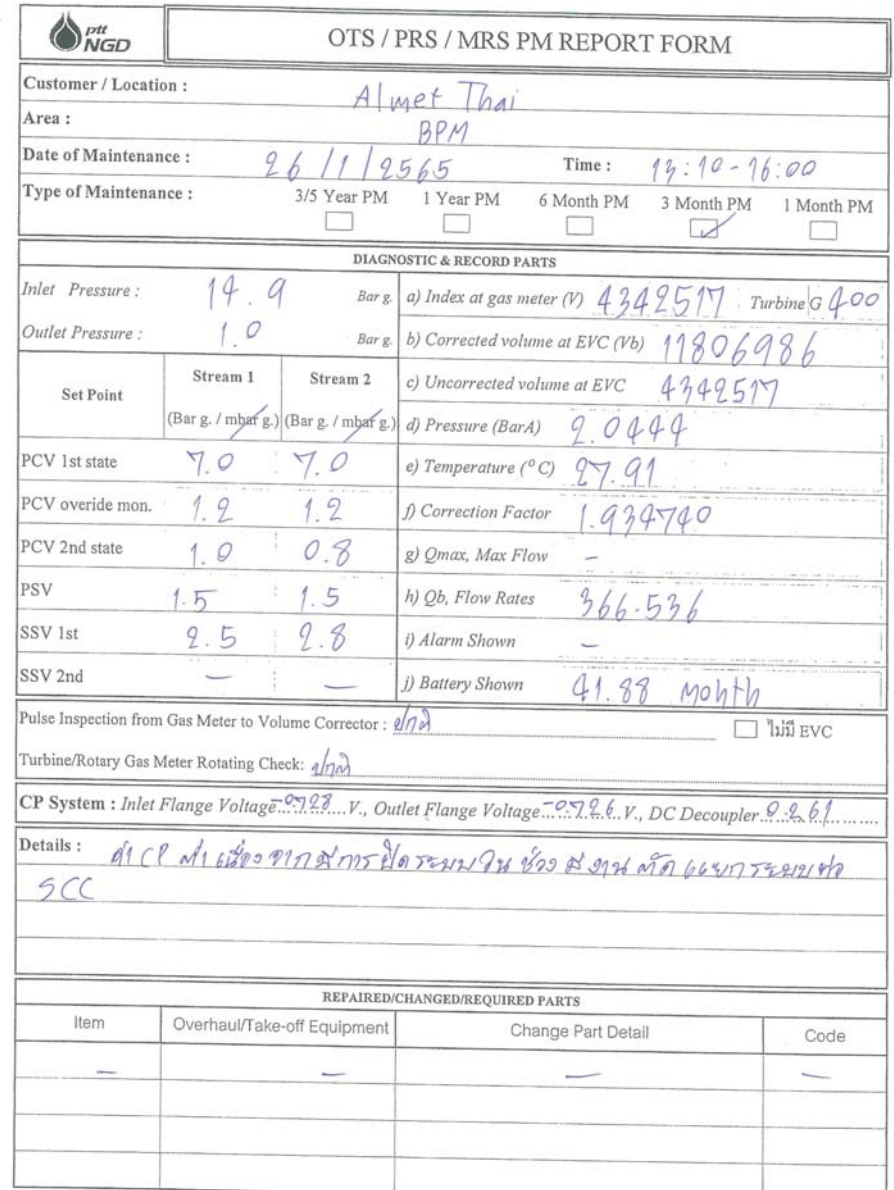 ptt
NGD
OTS / PRS / MRS PM REPORT FORM
Customer / Location : Almet Thai
Area : BPM
Date of Maintenance : 26 / 1 / 2565 Time : 13:10 - 16:00
Type of Maintenance : 3/5 Year PM 1 Year PM 6 Month PM 3 Month PM 1 Month PM
DIAGNOSTIC & RECORD PARTS
Inlet Pressure : 14.9 Bar g.
Outlet Pressure : 1.0 Bar g.
Set Point Stream 1 Stream 2
(Bar g. / mbar g.) (Bar g. / mbar g.)
PCV 1st state 7.0 7.0
PCV overide mon. 1.2 1.2
PCV 2nd state 1.0 0.8
PSV 1.5 1.5
SSV 1st 2.5 2.8
SSV 2nd — —
a) Index at gas meter (V) 4342517 Turbine G 400
b) Corrected volume at EVC (Vb) 11806986
c) Uncorrected volume at EVC 4342517
d) Pressure (BarA) 2.0444
e) Temperature (°C) 27.91
f) Correction Factor 1.934740
g) Qmax, Max Flow –
h) Qb, Flow Rates 366.536
i) Alarm Shown –
j) Battery Shown 41.88 Month
Pulse Inspection from Gas Meter to Volume Corrector : ปกติ ไม่มี EVC
Turbine/Rotary Gas Meter Rotating Check: ปกติ
CP System : Inlet Flange Voltage -0.728 V., Outlet Flange Voltage -0.726 V., DC Decoupler 0.261
Details : ค่า CP ต่ำ เนื่องจากมีการปิดระบบใน ช่วง มี งาน ตัด แยก ระบบ ท่อ
SCC
REPAIRED/CHANGED/REQUIRED PARTS
Item Overhaul/Take-off Equipment Change Part Detail Code
— — — —